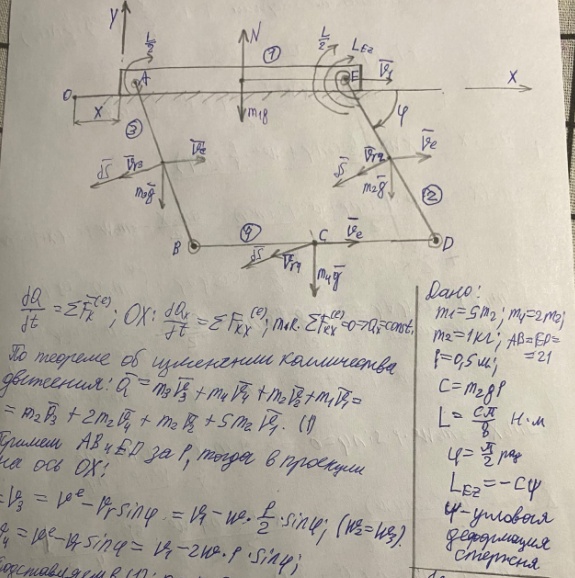 y
L/2
N
①
L/2
L_Ez
V̄₁
A
E
X
O
X
m₁g
φ
③
V̄e
V̄r3
δS̄
m₃ḡ
V̄e
V̄r2
δS̄
m₂ḡ
②
B
④
C
V̄e
D
δS̄
V̄r4
m₄ḡ
dQ̄/dt = ΣF̄ₖ^(e); OX: dQx/dt = ΣFkx^(e); т.к. ΣFkx^(e)=0 => Qx=const.
По теореме об изменении количества
движения: Q̄ = m₃V̄₃ + m₄V̄₄ + m₂V̄₂ + m₁V̄₁ =
= m₂V̄₃ + 2m₂V̄₄ + m₂V̄₂ + 5m₂V̄₁. (1)
Примем AB и ED за l, тогда в проекции
на ось OX:
= V₃ = Vᵉ - Vr sinφ = V₁ - w · l/2 · sinφ; (w₂=w₃).
V₄ = Vᵉ - Vr sinφ = V₁ - 2w · l · sinφ;
Дано:
m₁=5m₂; m₄=2m₂;
m₂=1кг; AB=ED=
=2l
l=0,5м;
C=m₂gl
L = cπ/8 Н·м
φ = π/2 рад
L_Ez = -cφ
φ-угловая
деформация
стержня